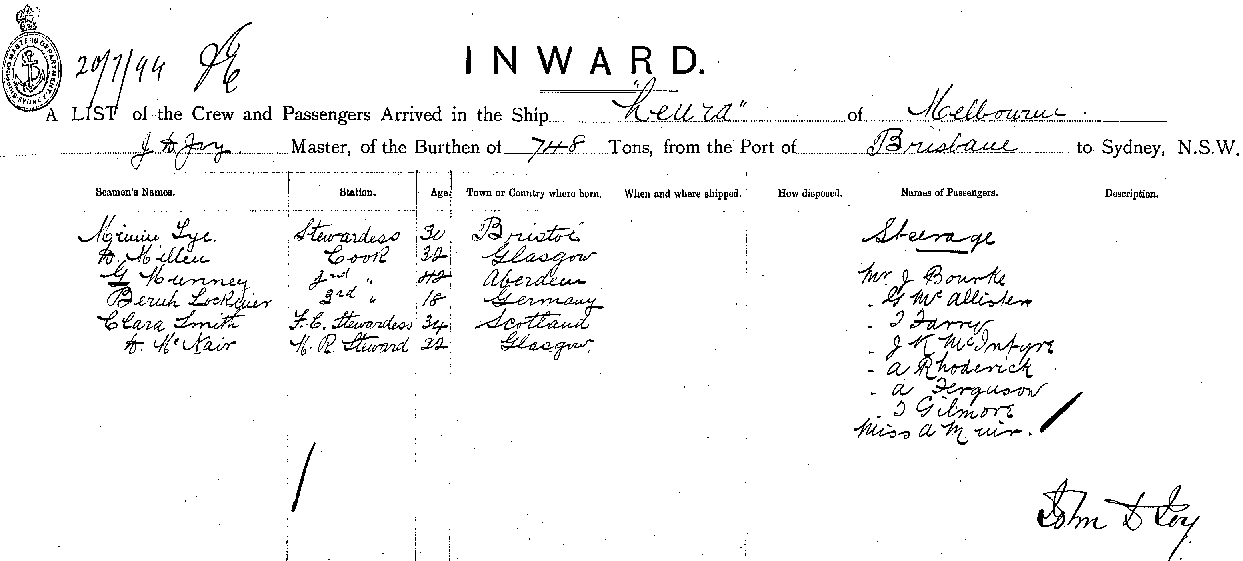 20/7/99
INWARD.
A LIST of the Crew and Passengers Arrived in the Ship "Leura" of Melbourne
J D Joy Master, of the Burthen of 748 Tons, from the Port of Brisbane to Sydney, N.S.W.
Seamen's Names. Station. Age. Town or Country where born. When and where shipped. How disposed. Names of Passengers. Description.
Minnie Lye. Stewardess 30 Bristol Steerage
D. Millen Cook 32 Glasgow
G Munney 2nd " 42 Aberdeen Mr J Bourke
3rd " 18 Germany - G McAllister
Clara Smith F.C. Stewardess 34 Scotland - T Farry
D. McNair M.R. Steward 22 Glasgow. - J K McIntyre
- A Rhoderick
- A Ferguson
- T Gilmore
Miss A Muir.
John D Joy